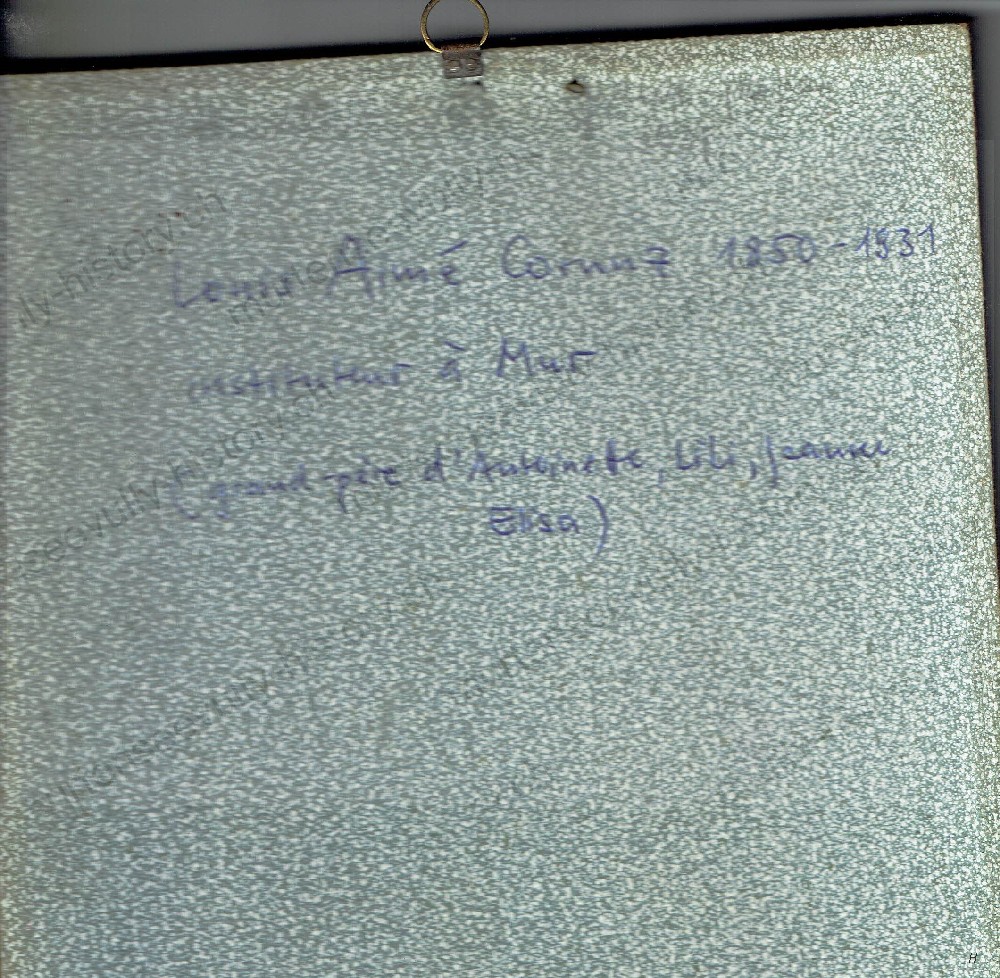 Louis Aimé Cornuz 1850-1931
instituteur à Mur
(grand-père d'Antoinette, Lili, Jeanne
Elisa)